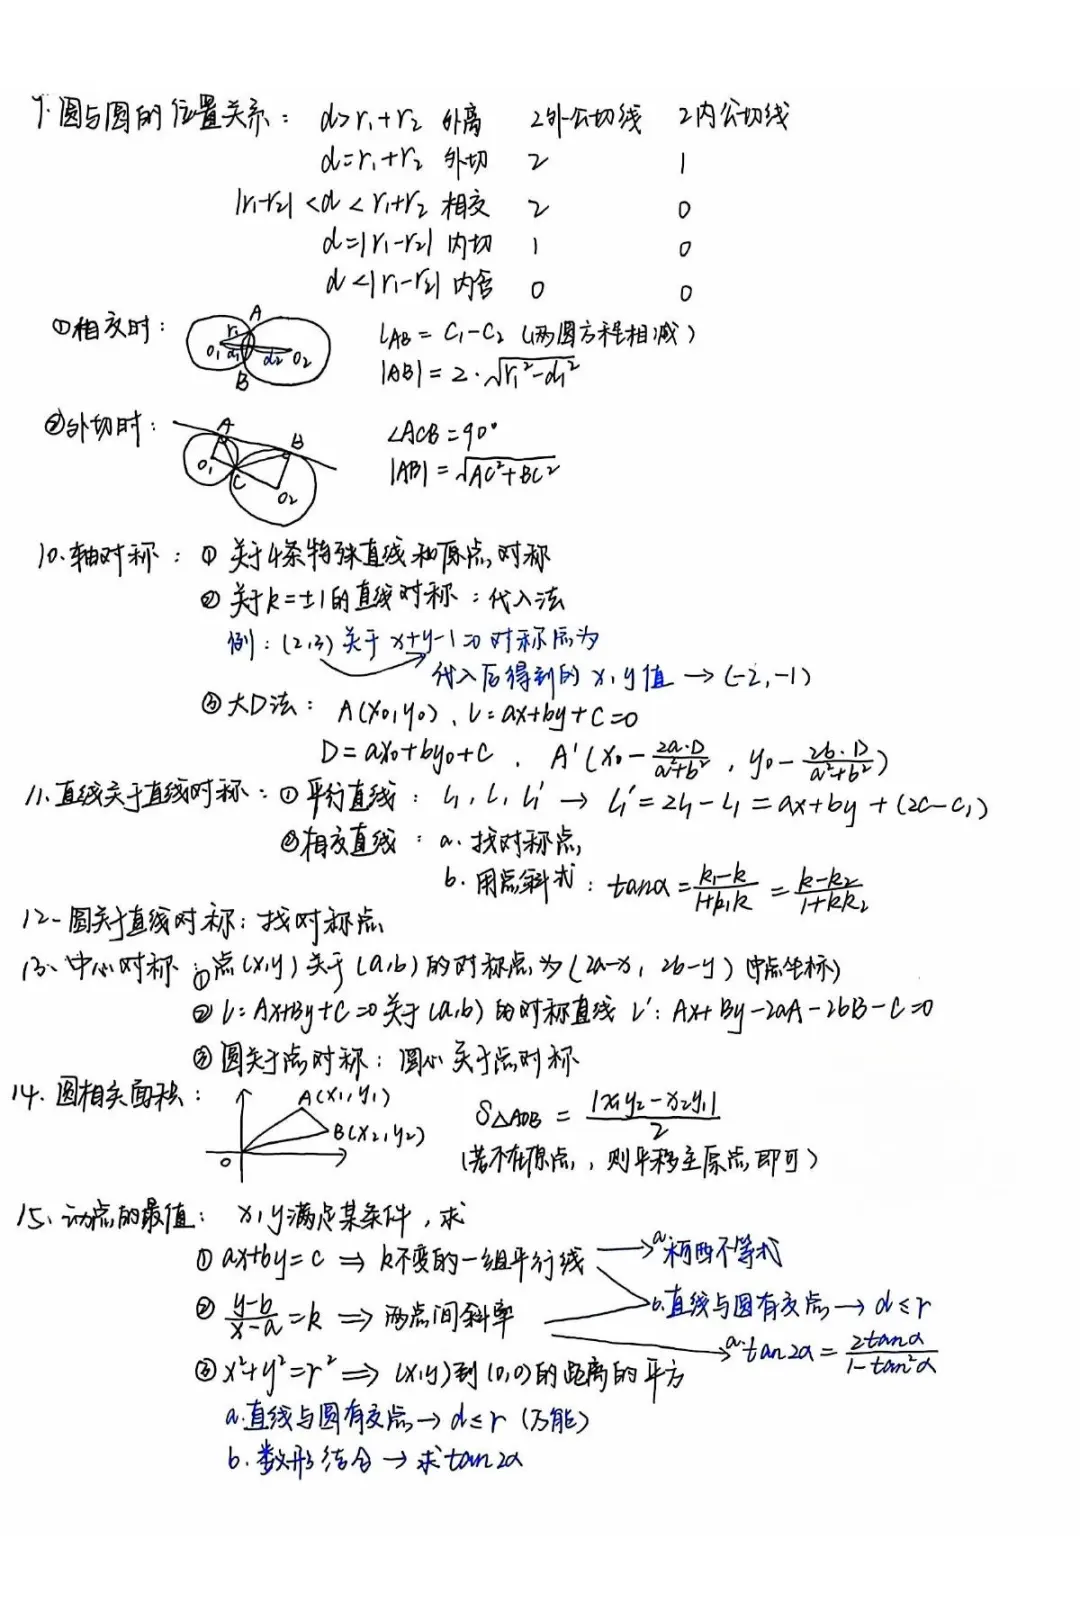 9.圆与圆的位置关系: d>r₁+r₂ 外离 2外公切线 2内公切线
d=r₁+r₂ 外切 2 1
|r₁-r₂|<d<r₁+r₂ 相交 2 0
d=|r₁-r₂| 内切 1 0
d<|r₁-r₂| 内含 0 0
①相交时: A r₁ O₁ d₁ d₂ O₂ B l_AB = C₁-C₂ (两圆方程相减)
|AB|=2·√(r₁²-d₁²)
②外切时: A B O₁ C O₂ ∠ACB=90°
|AB|=√(AC²+BC²)
10.轴对称: ①关于4条特殊直线和原点对称
②关于k=±1的直线对称:代入法
例:(2,3)关于x+y-1=0对称点为
代入后得到的x,y值→(-2,-1)
③大D法: A(x₀,y₀), l=ax+by+c=0
D=ax₀+by₀+c, A'(x₀-2a·D/(a²+b²), y₀-2b·D/(a²+b²))
11.直线关于直线对称:①平行直线: l₁, l, l₁' → l₁'=2l₁-l₁=ax+by+(2c-c₁)
②相交直线: a.找对称点
b.用点斜式: tanα=(k₁-k)/(1+k₁k)=(k-k₂)/(1+kk₂)
12.圆关于直线对称:找对称点
13.中心对称:①点(x,y)关于(a,b)的对称点为(2a-x, 2b-y)(中点坐标)
②l=Ax+By+C=0关于(a,b)的对称直线l': Ax+By-2aA-2bB-C=0
③圆关于点对称:圆心关于点对称
14.圆相关面积: A(x₁,y₁) B(x₂,y₂) O S△AOB=|x₁y₂-x₂y₁|/2
(若不在原点,则平移至原点即可)
15.动点的最值: x,y满足某条件,求
①ax+by=c⇒k不变的一组平行线 a.柯西不等式
②(y-b)/(x-a)=k⇒两点间斜率 b.直线与圆有交点→d≤r
a.tan2α=2tanα/(1-tan²α)
③x²+y²=r²⇒(x,y)到(0,0)的距离的平方
a.直线与圆有交点→d≤r(万能)
b.数形结合→求tan2α